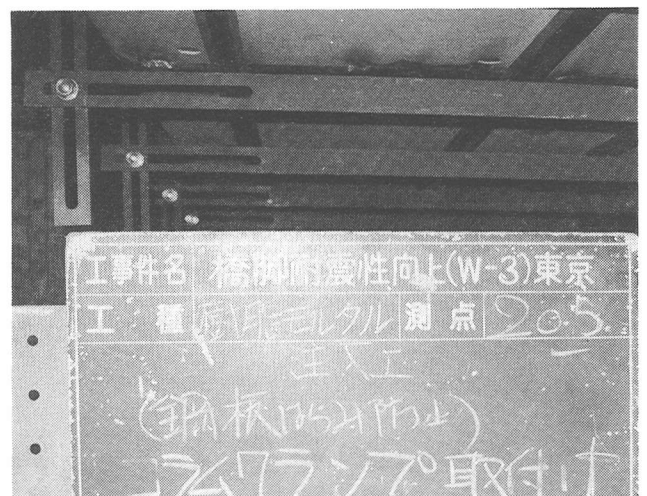 工事件名 橋脚耐震性向上(W-3)東京
工種 モルタル 測点 20.5
注入工
(鋼板はらみ防止)
コラムクランプ取付け